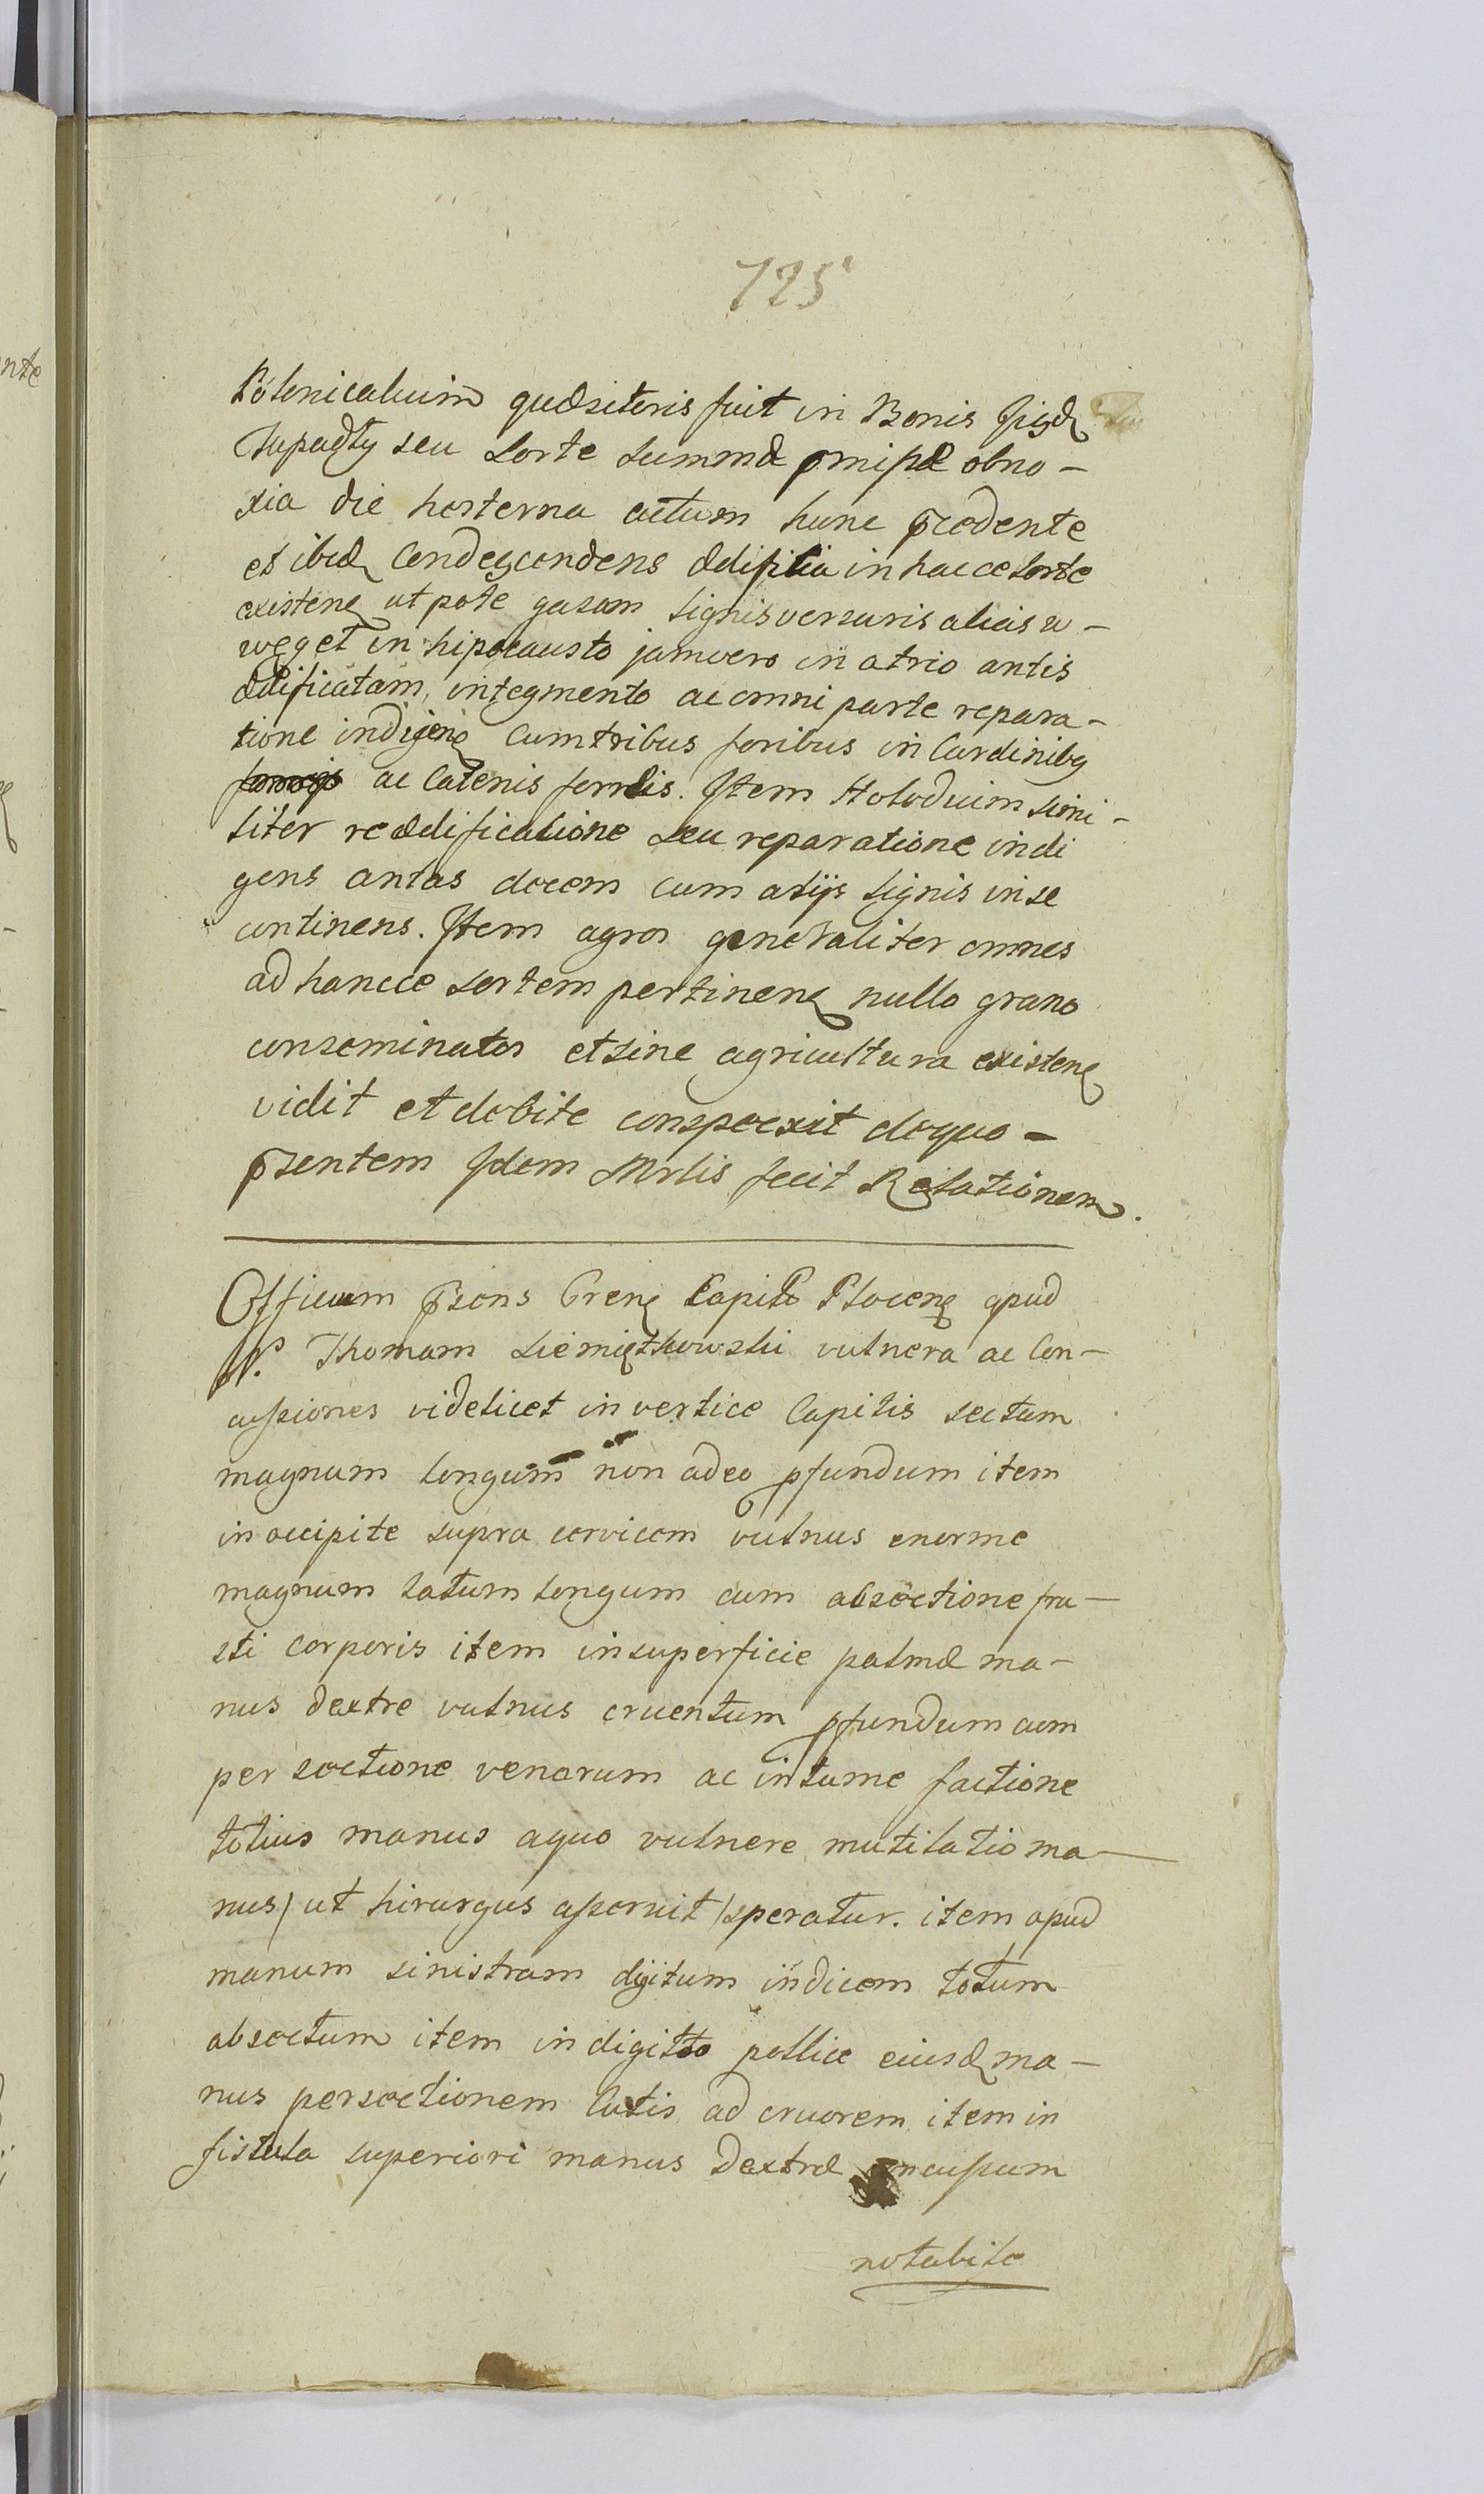 725
quæsitoris fuit in Bonis
seu Sorte summæ obno-
xia die hesterna actum hunc p̄cedente
et ibid Condescendens ædificia in hacce Sorte
existenꝫ utpote gazam lignis versuris alias w-
węgeł in hipocausto jamvero in atrio antis
ædificatam, integmento ac omni parte repara-
tione indigenꝫ Cum tribus foribus in Cardinibꝫ
ac Catenis ferreis. Item simi-
liter reædificatione seu reparatione indi
gens antas decem cum alijs lignis in se
continens. Item agros generaliter omnes
ad hancce sortem pertinenꝫ nullo grano
conseminatos et sine agricultura existenꝫ
vidit et debite conspoexit de quo -
p̄sentem Idem Mrlis fecit Relationem.
Officium p̄sens Crenꝫ Capit Plocenꝫ apud
N. Thomam vulnera ac Con-
cussiones videlicet in vertice Capitis sectum
magnum longum non adeo pfundum item
in occipite supra cervicem vulnus enorme
magnum latum longum cum absectione fru-
sti corporis item in superficie palmæ ma-
nus dextre vulnus cruentum pfundum cum
per sectione venarum ac intume factione
totius manus a quo vulnere mutilatio ma-
nus / ut hirurgus asseruit / speratur. item apud
manum sinistram digitum indicem totum
absectum item in digitto pollice eiusd ma-
nus persectionem Cutis ad cruorem item in
fistula superiori manus Dextræ concussum
notabile
nte